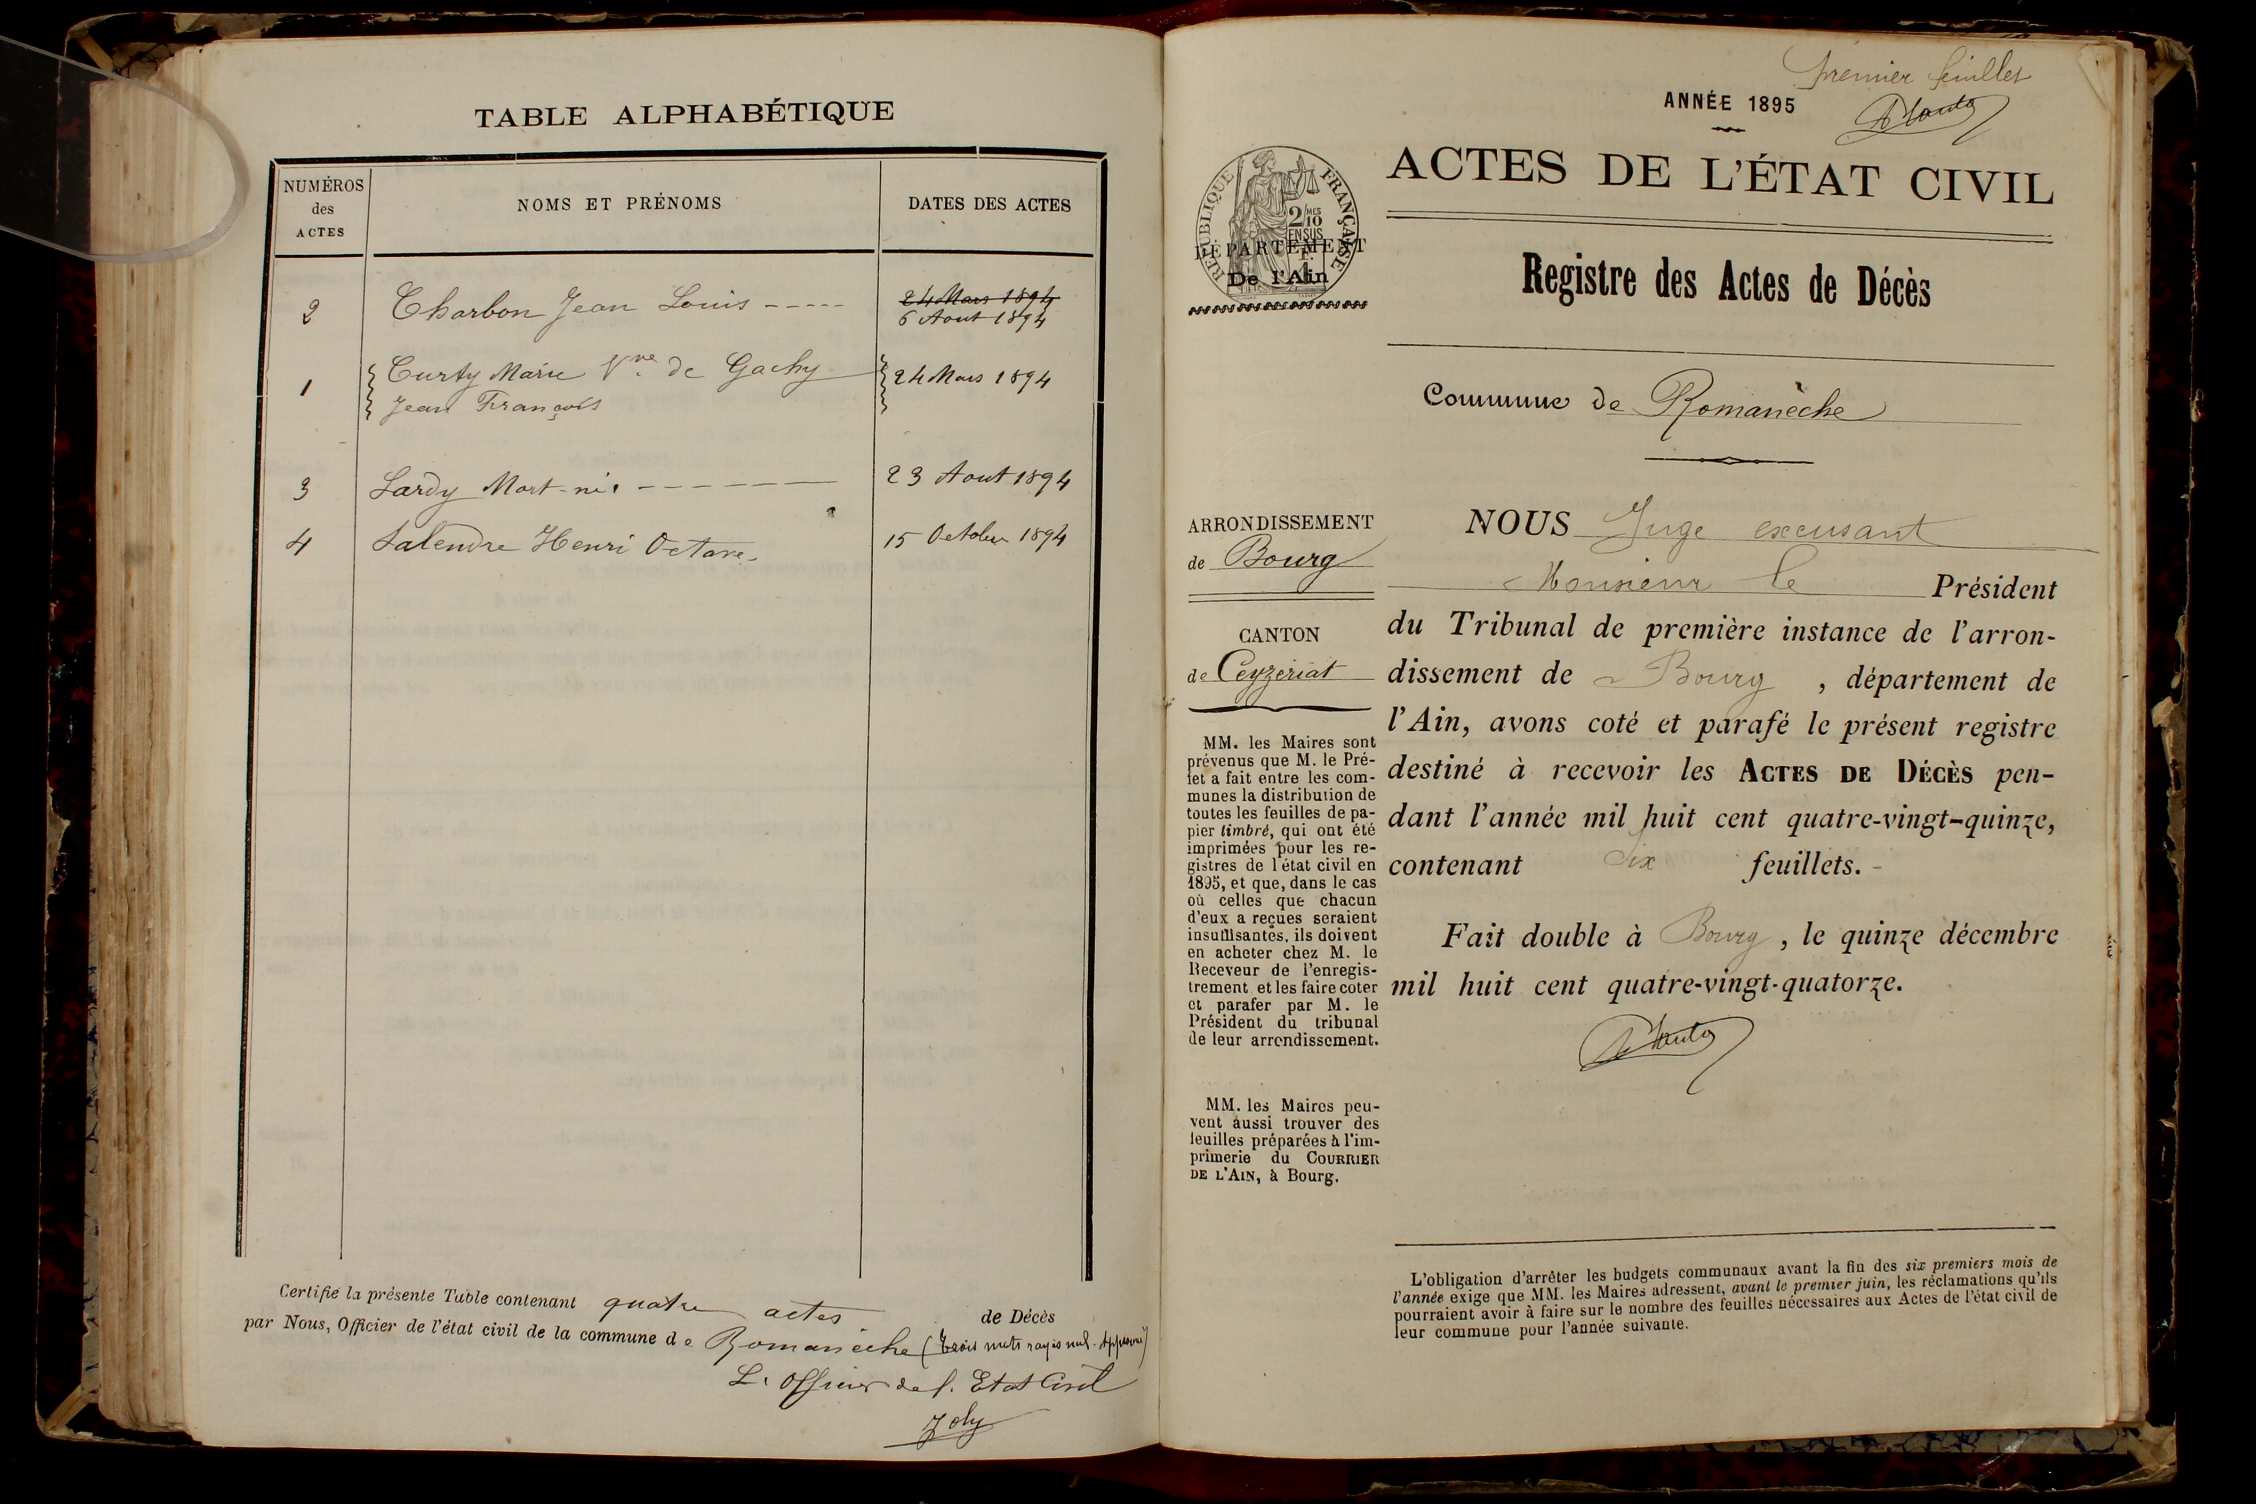 TABLE ALPHABÉTIQUE
NUMÉROS
des
ACTES
NOMS ET PRÉNOMS
DATES DES ACTES
2 Charbon Jean Louis 24 Mars 1894
6 Aout 1894
1 Curty Marie Vve de Gachy 24 Mars 1894
Jean François
3 Lardy Mort-né 23 Aout 1894
4 Salendre Henri Octave 15 Octobre 1894
Certifié la présente Table contenant quatre actes de Décès
par Nous, Officier de l'état civil de la commune de Romanèche (trois mots rayés nul. Approuvé)
L'Officier de l'Etat Civil
Joly
premier feuillet
ANNÉE 1895
ACTES DE L'ÉTAT CIVIL
RÉPUBLIQUE FRANÇAISE
2/10 MES
EN SUS
DÉPARTEMENT
De l'Ain
Registre des Actes de Décès
Commune de Romanèche
ARRONDISSEMENT
de Bourg
CANTON
de Ceyzériat
MM. les Maires sont
prévenus que M. le Pré-
fet a fait entre les com-
munes la distribution de
toutes les feuilles de pa-
pier timbré, qui ont été
imprimées pour les re-
gistres de l'état civil en
1895, et que, dans le cas
où celles que chacun
d'eux a reçues seraient
insuffisantes, ils doivent
en acheter chez M. le
Receveur de l'enregis-
trement et les faire coter
et parafer par M. le
Président du tribunal
de leur arrondissement.
MM. les Maires peu-
vent aussi trouver des
feuilles préparées à l'im-
primerie du COURRIER
DE L'AIN, à Bourg.
NOUS Juge excusant
Monsieur le Président
du Tribunal de première instance de l'arron-
dissement de Bourg, département de
l'Ain, avons coté et parafé le présent registre
destiné à recevoir les ACTES DE DÉCÈS pen-
dant l'année mil huit cent quatre-vingt-quinze,
contenant Six feuillets.
Fait double à Bourg, le quinze décembre
mil huit cent quatre-vingt-quatorze.
L'obligation d'arrêter les budgets communaux avant la fin des six premiers mois de
l'année exige que MM. les Maires adressent, avant le premier juin, les réclamations qu'ils
pourraient avoir à faire sur le nombre des feuilles nécessaires aux Actes de l'état civil de
leur commune pour l'année suivante.